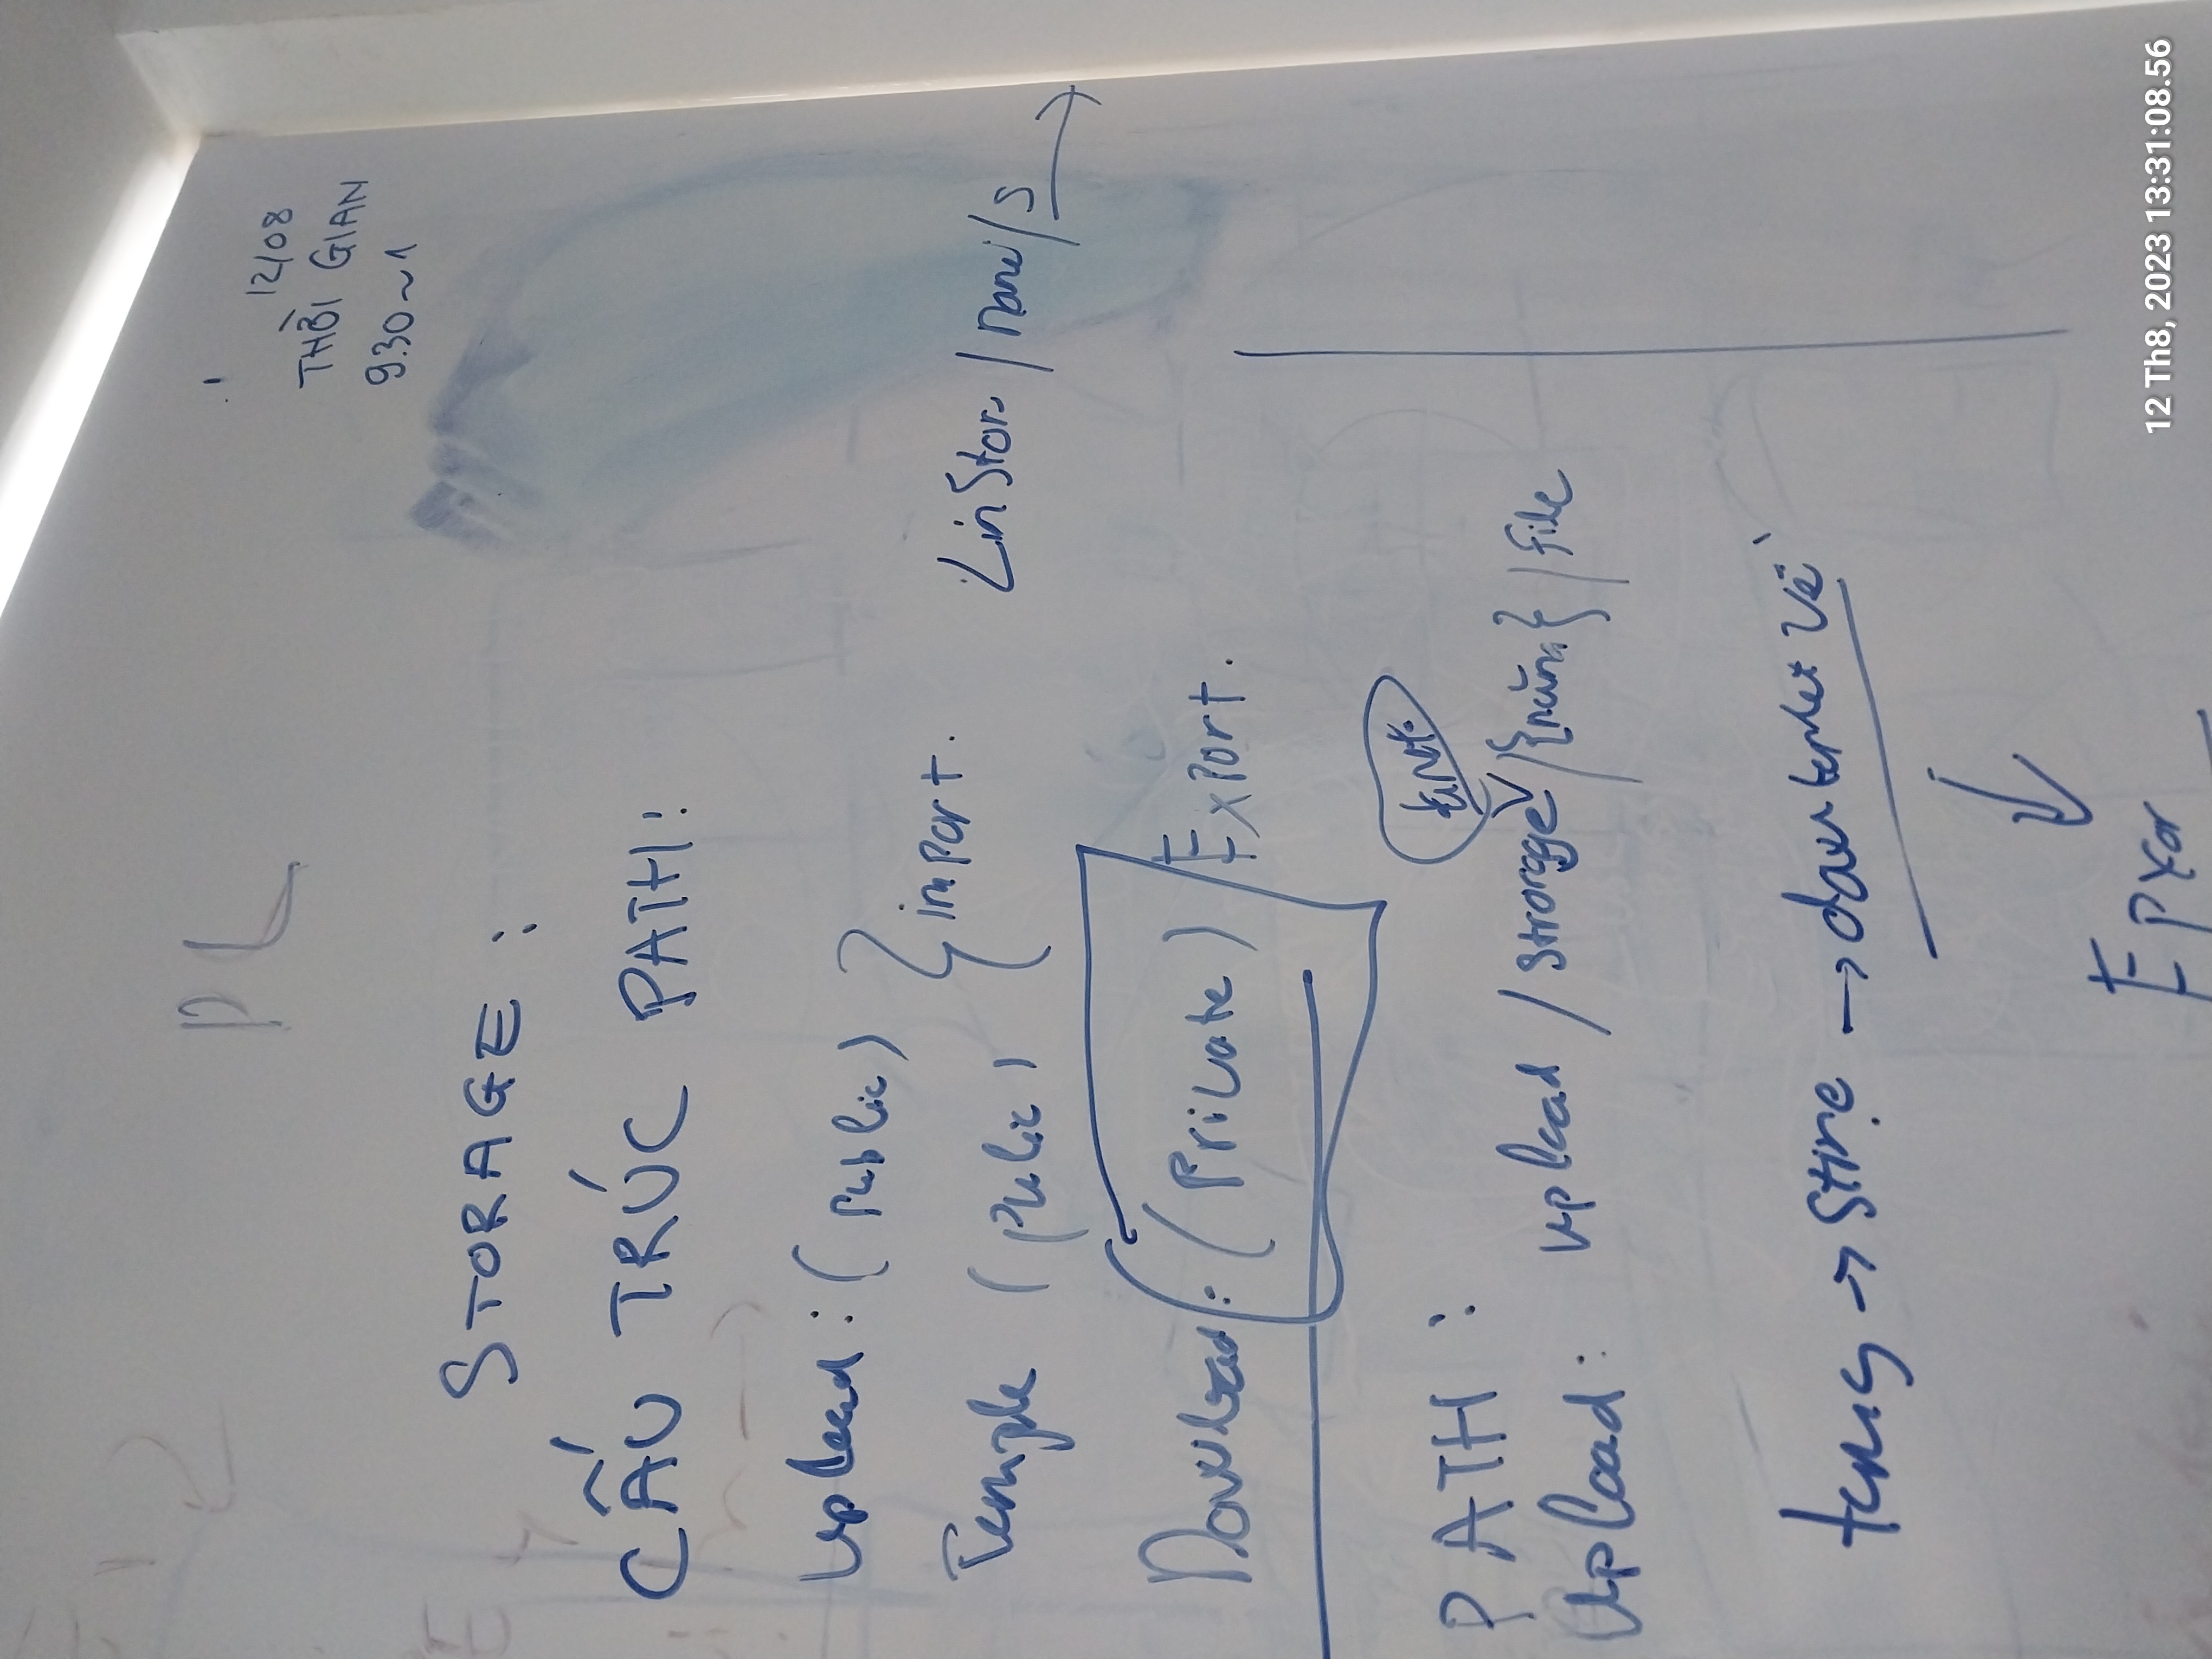 PL
12/08
THỜI GIAN
9.30~1
STORAGE :
CẤU TRÚC PATH:
Upload: (Public)
Temple (public)
import.
LinStor / name/s
Download: (Private) Export.
PATH :
Upload: upload / strorage / {năm} / file
→ → về
Epxor
12 Th8, 2023 13:31:08.56